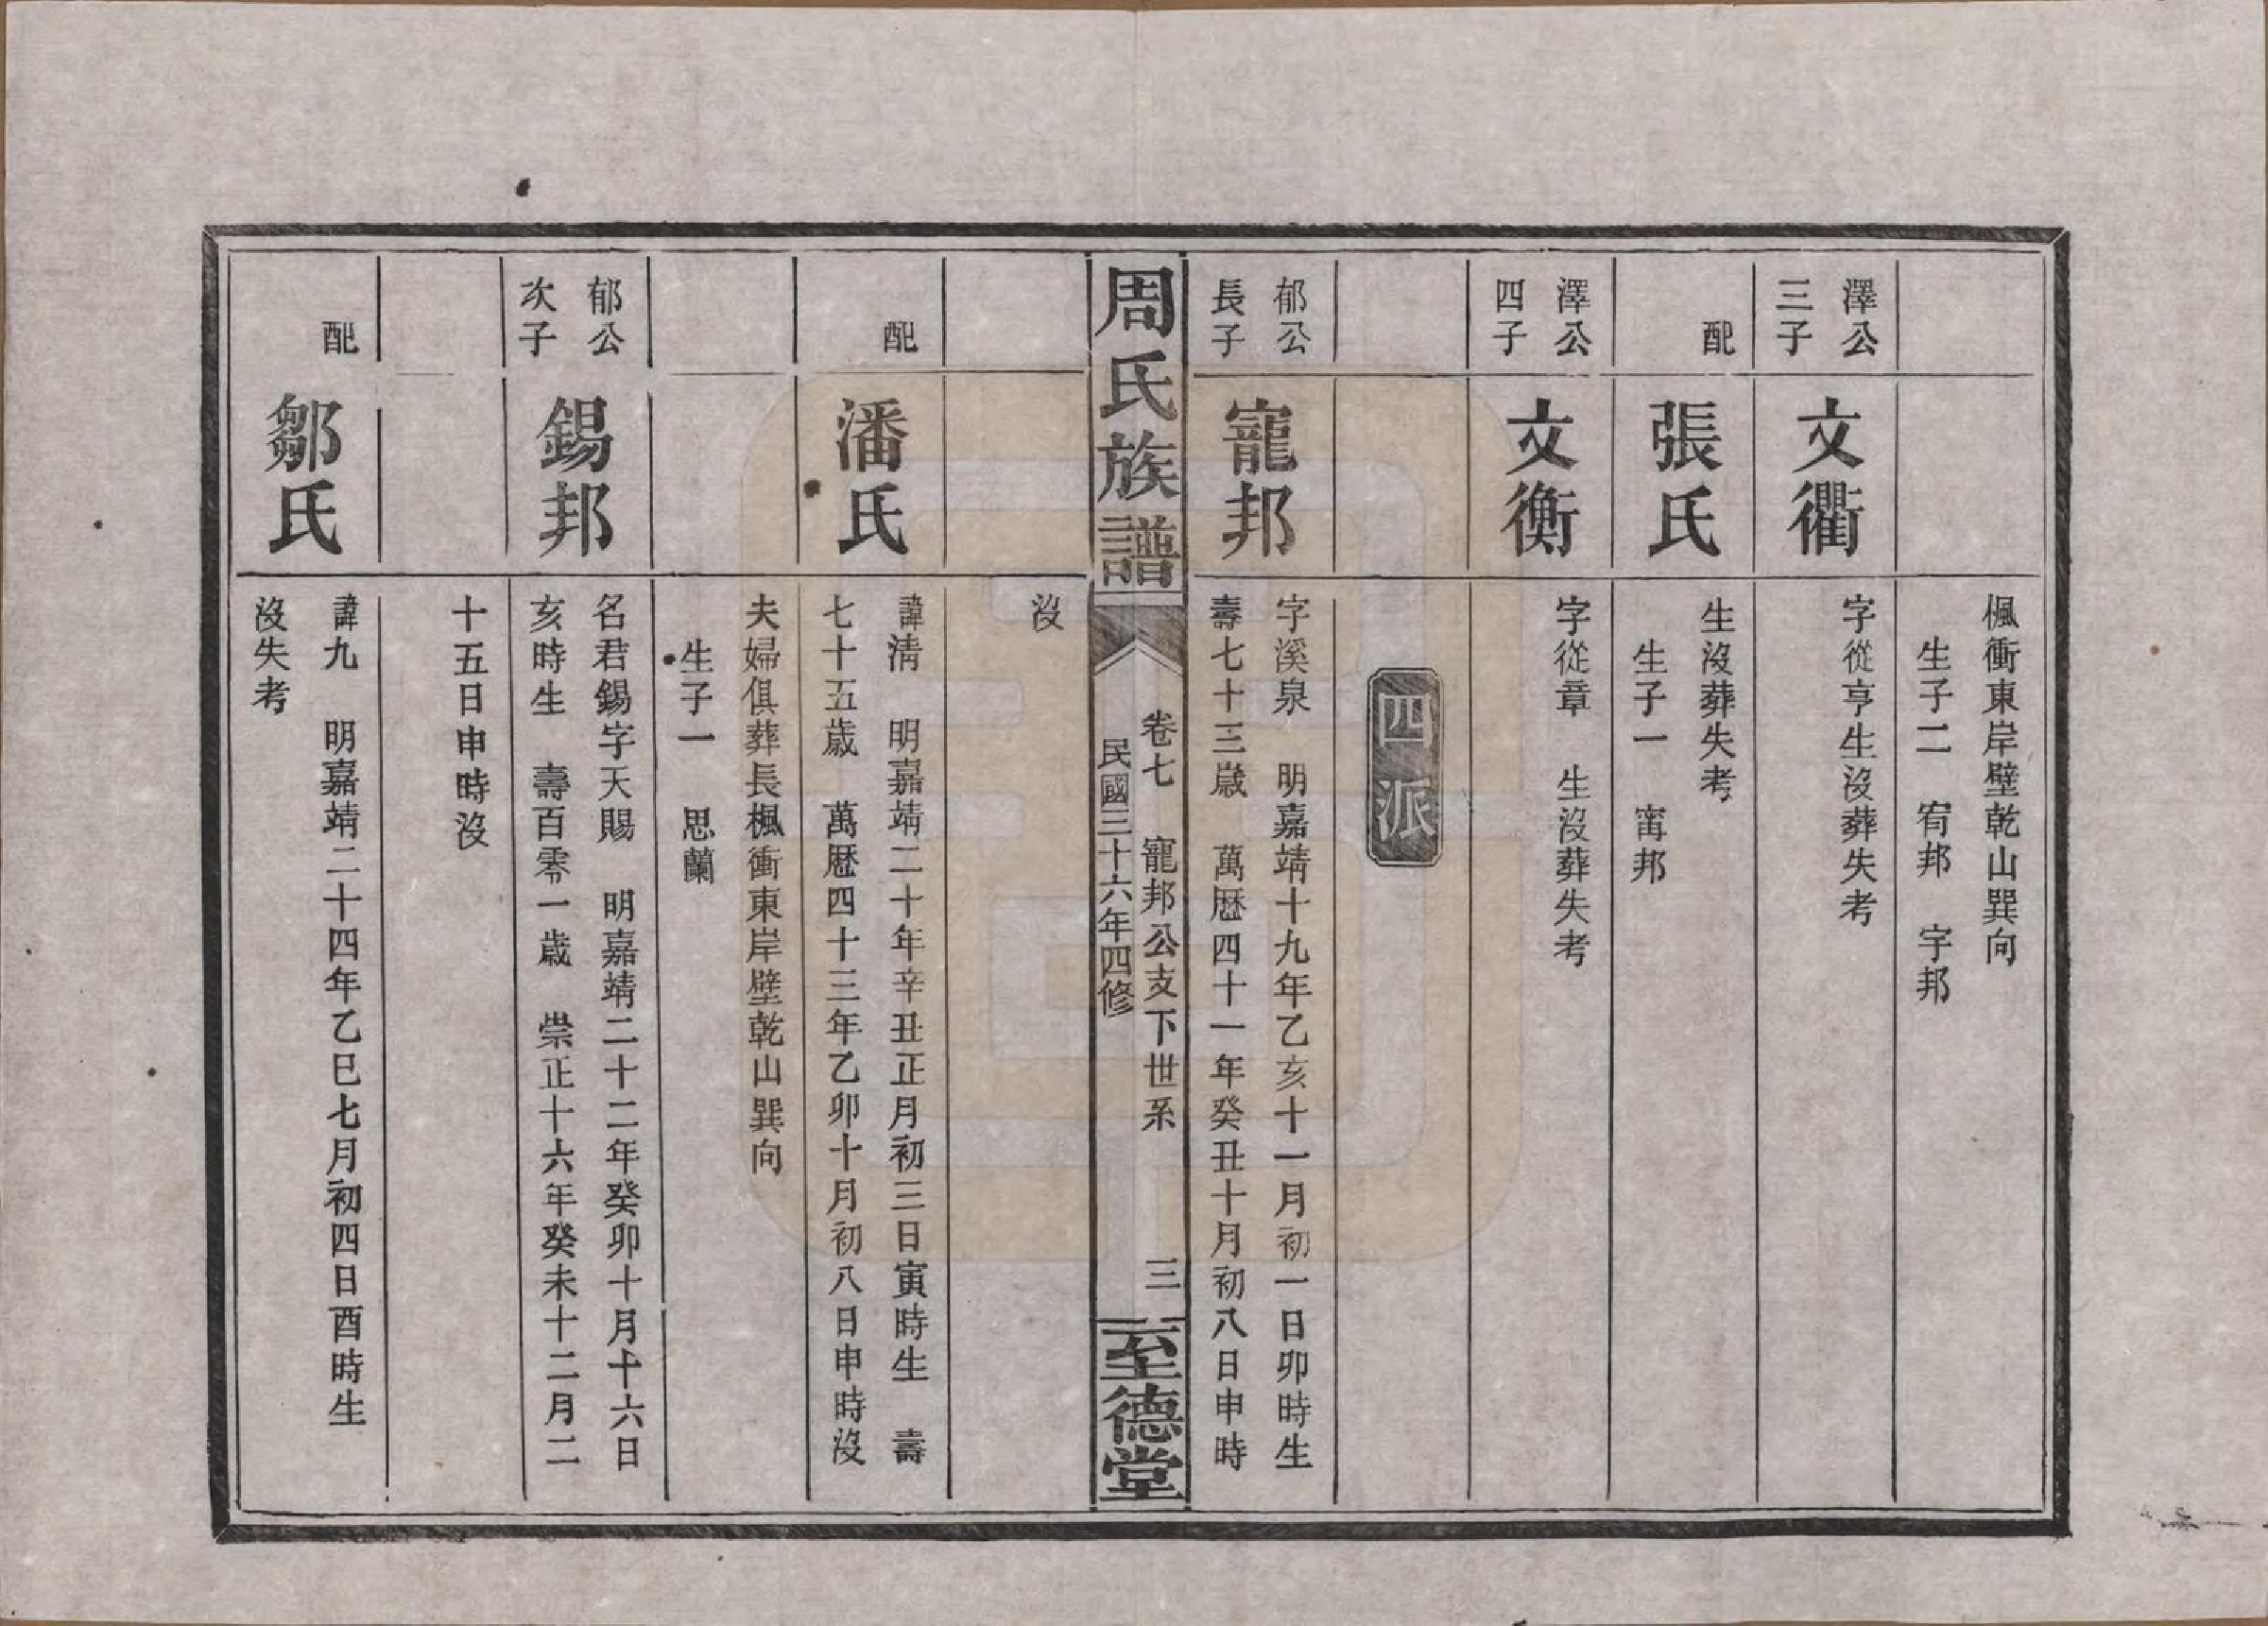 楓衝東岸壁乾山巽向
生子二　宥邦　宇邦
澤公
三子
文衢
字從亨生沒葬失考
配
張氏
生沒葬失考
生子一　甯邦
澤公
四子
文衡
字從章　生沒葬失考
四派
郁公
長子
寵邦
字溪泉　明嘉靖十九年乙亥十一月初一日卯時生
壽七十三歲　萬歷四十一年癸丑十月初八日申時
周氏族譜
卷七　寵邦公支下世系　三
民國三十六年四修
至德堂
沒
配
潘氏
諱清　明嘉靖二十年辛丑正月初三日寅時生　壽
七十五歲　萬歷四十三年乙卯十月初八日申時沒
夫婦俱葬長楓衝東岸壁乾山巽向
生子一　思蘭
郁公
次子
錫邦
名君錫字天賜　明嘉靖二十二年癸卯十月十六日
亥時生　壽百零一歲　崇正十六年癸未十二月二
十五日申時沒
配
鄒氏
諱九　明嘉靖二十四年乙巳七月初四日酉時生
沒失考